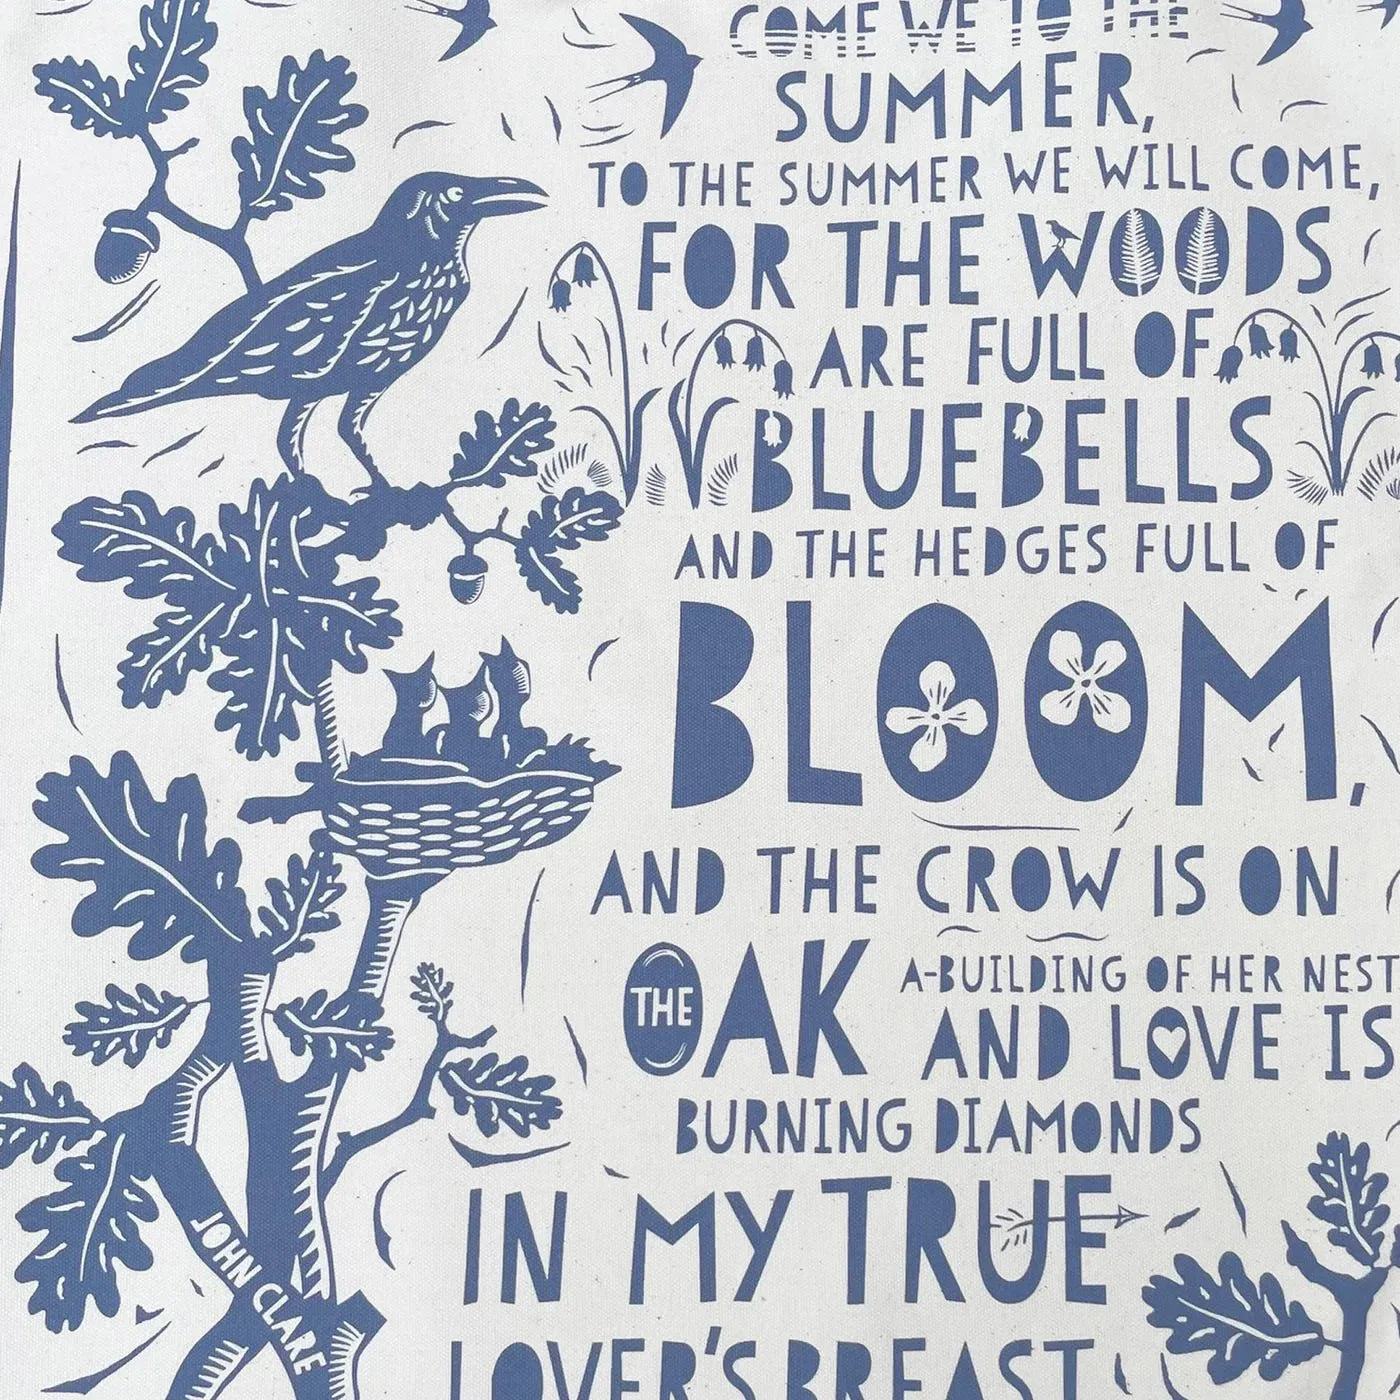 COME WE TO THE
SUMMER,
TO THE SUMMER WE WILL COME,
FOR THE WOODS
ARE FULL OF
BLUEBELLS
AND THE HEDGES FULL OF
BLOOM,
AND THE CROW IS ON
THE OAK A-BUILDING OF HER NEST
AND LOVE IS
BURNING DIAMONDS
IN MY TRUE
LOVER'S BREAST
JOHN CLARE